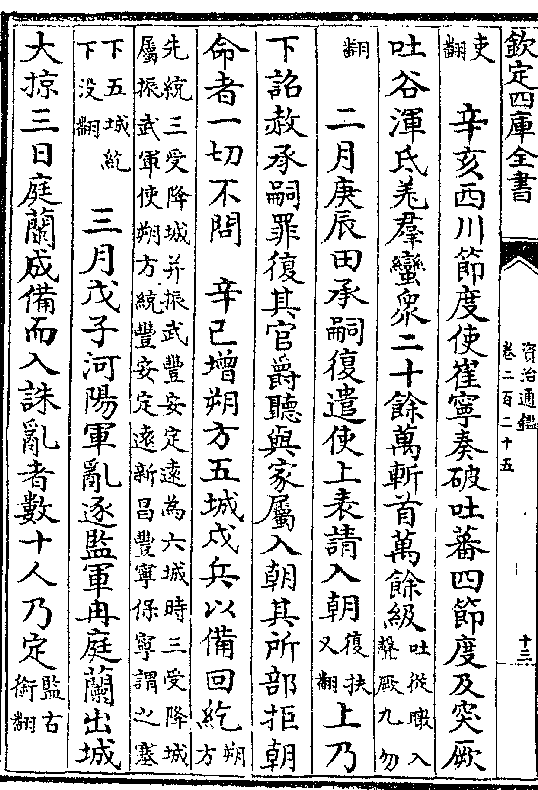 欽定四庫全書
資治通鑑
卷二百二十五
十三
吏翻 辛亥西川節度使崔寧奏破吐蕃四節度及突厥
吐谷渾氐羌羣蠻衆二十餘萬斬首萬餘級吐從暾入聲厥九勿
翻 二月庚辰田承嗣復遣使上表請入朝復扶又翻上乃
下詔赦承嗣罪復其官爵聽與家屬入朝其所部拒朝
命者一切不問 辛巳增朔方五城戍兵以備回紇朔方
先統三受降城并振武豐安定遠為六城時三受降城
屬振武軍使朔方統豐安定遠新昌豐寧保寧謂之塞
下五城紇下没翻 三月戊子河陽軍亂逐監軍冉庭蘭出城
大掠三日庭蘭成備而入誅亂者數十人乃定監古銜翻